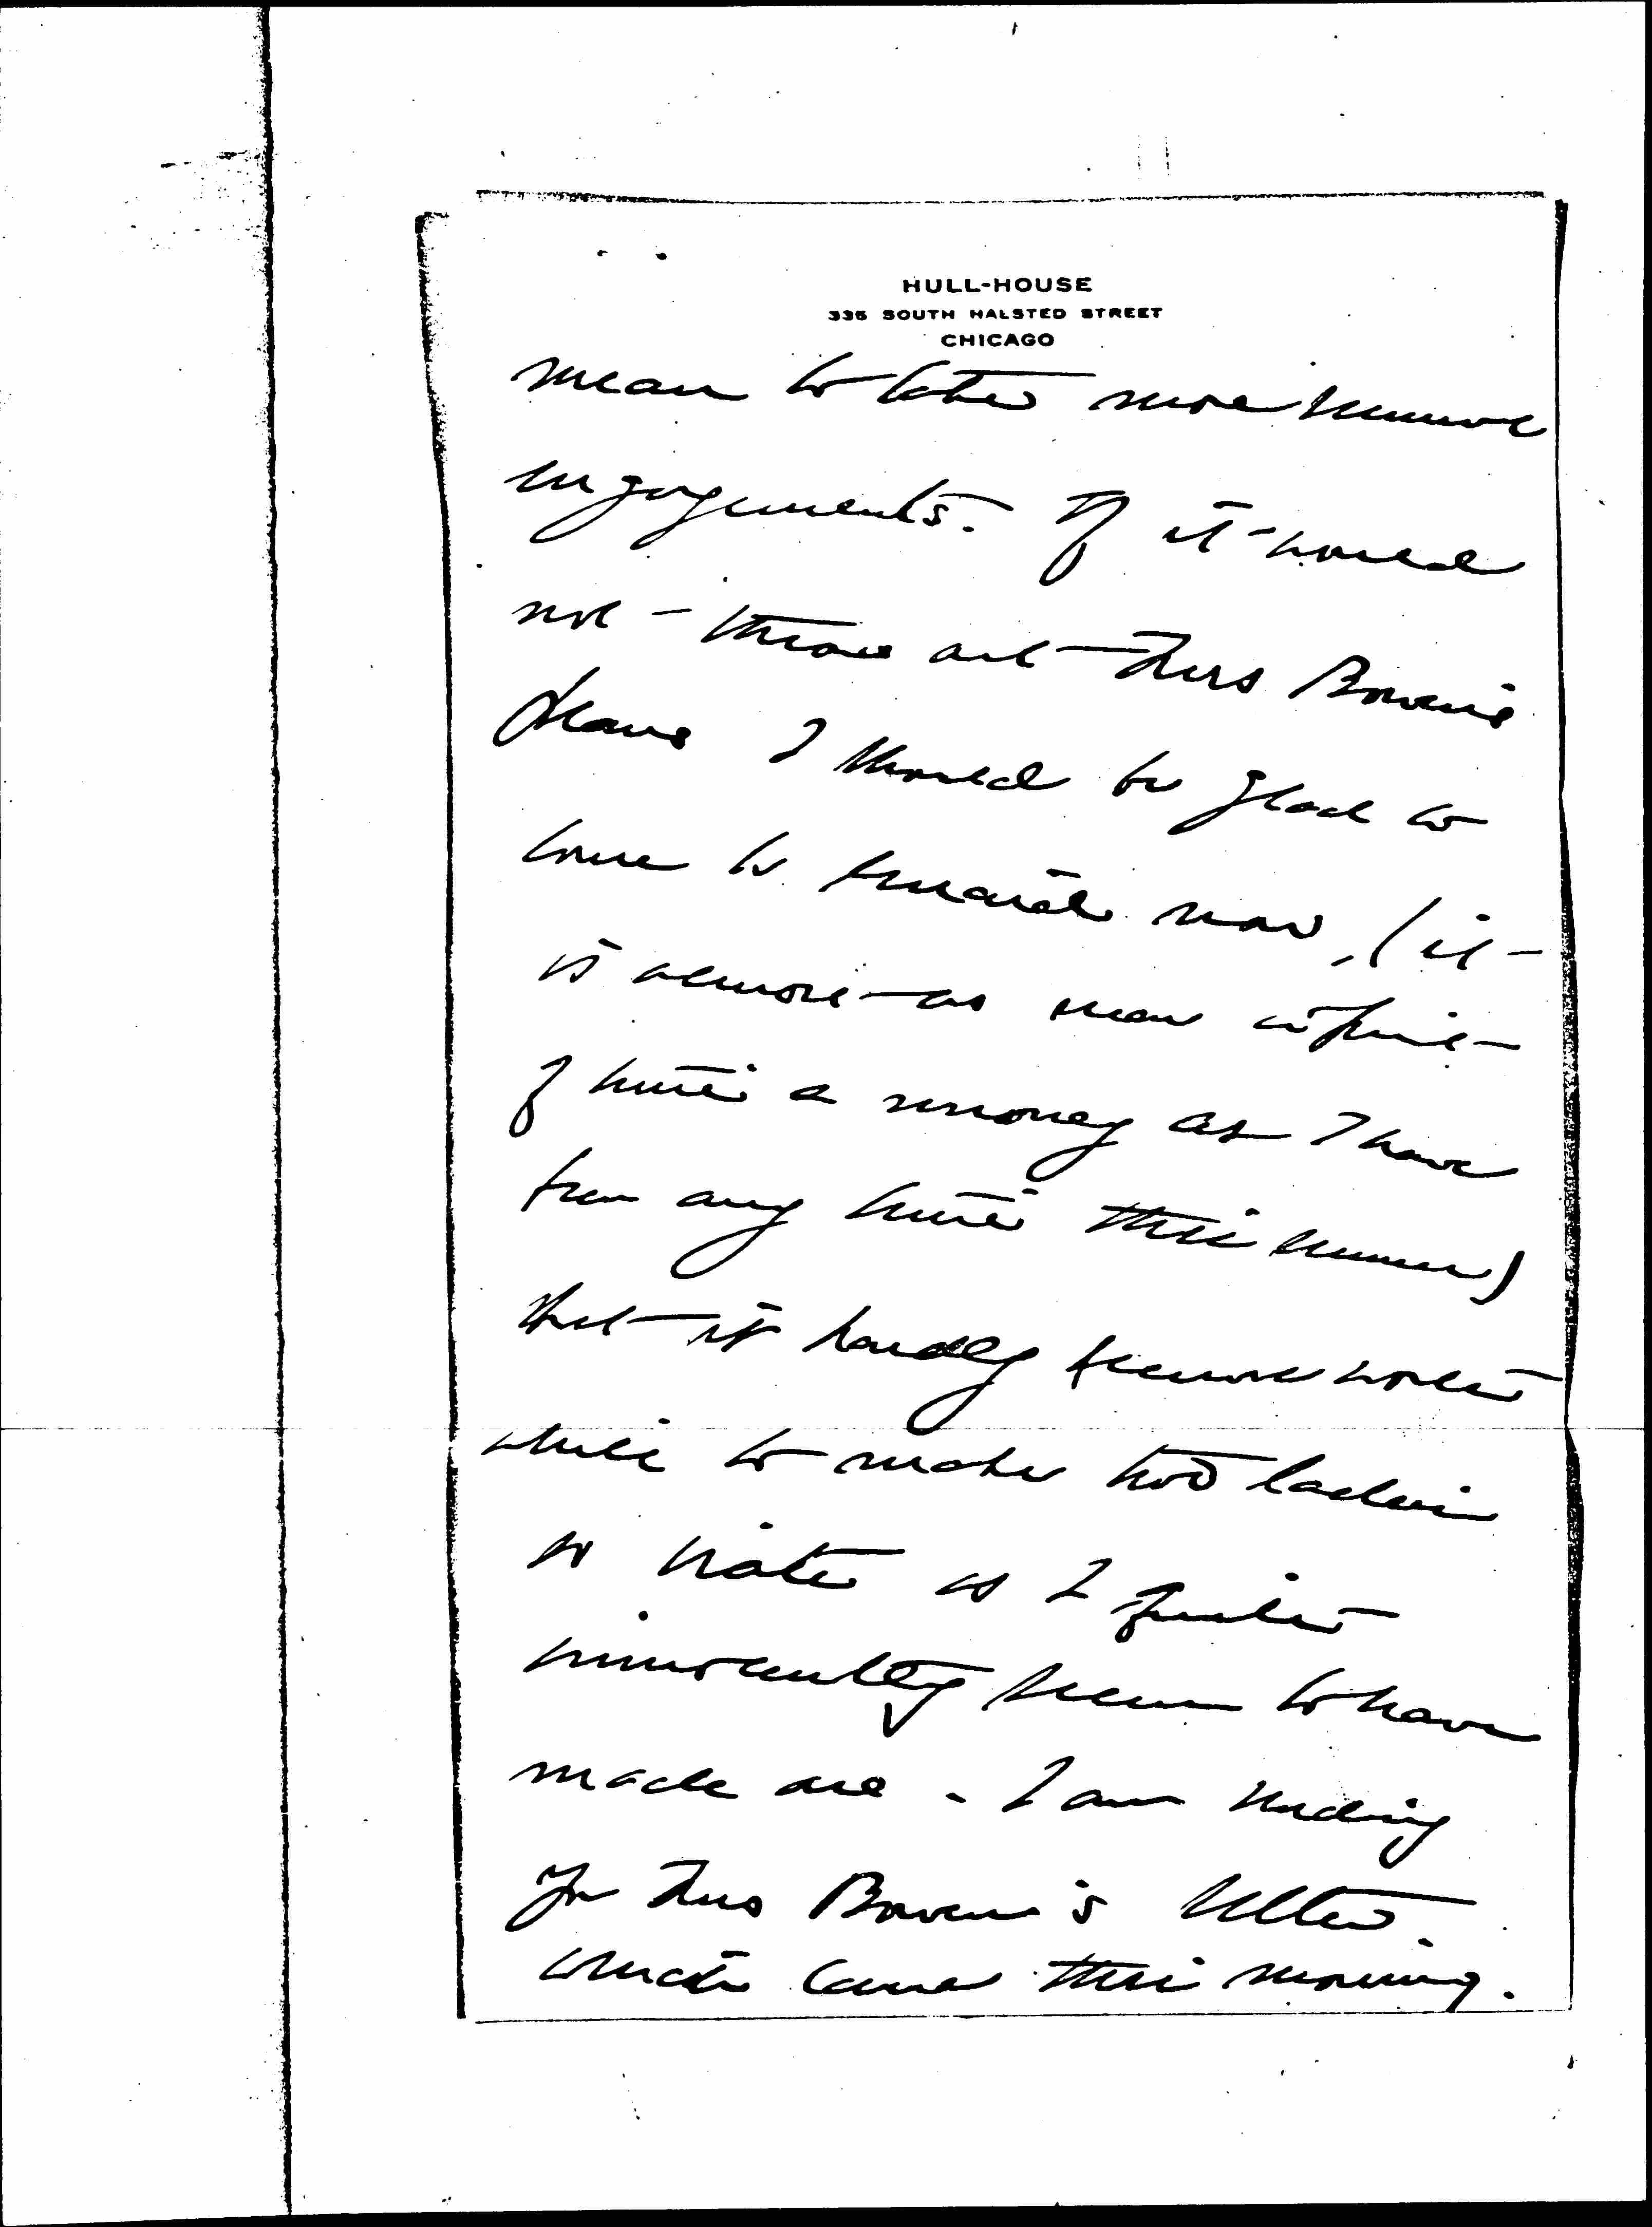 HULL-HOUSE
335 SOUTH HALSTED STREET
CHICAGO
mean to take more summer
engagements. If it would
not throw out Mrs Bowen's
plans I should be glad to
come to now, (it
is almost as near in point
of time & money as I have
been any time this summer)
but it hardly seems worth
while to make two ladies
so irate as I quite
innocently seem to have
made one. I am sending
you Mrs Bowen's letter
which came this morning.